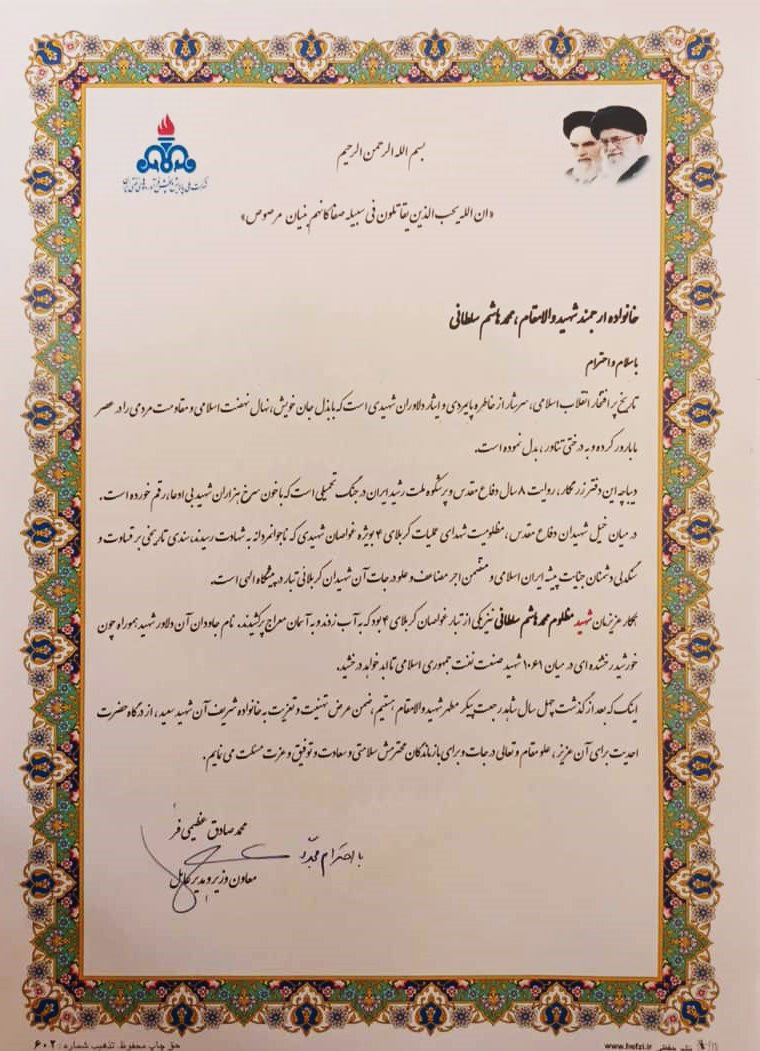 بسم الله الرحمن الرحیم
شرکت ملی پالایش و پخش فرآورده‌های نفتی ایران
«ان الله یحب الذین یقاتلون فی سبیله صفا کانهم بنیان مرصوص»
خانواده ارجمند شهید والامقام، محمد هاشم سلطانی
با سلام و احترام
تاریخ پر افتخار انقلاب اسلامی، سرشار از خاطره پایمردی و ایثار دلاوران شهیدی است که با بذل جان خویش، نهال نهضت اسلامی و مقاومت مردمی را در عصر
ما بارور کرده و به درختی تناور، بدل نموده است.
دیباچه این دفتر زرنگار، روایت ۸ سال دفاع مقدس و پرشکوه ملت رشید ایران در جنگ تحمیلی است که با خون سرخ هزاران شهید بی ادعا، رقم خورده است.
در میان خیل شهیدان دفاع مقدس، مظلومیت شهدای عملیات کربلای ۴ بویژه غواصان شهیدی که ناجوانمردانه به شهادت رسیدند، سندی تاریخی بر قساوت و
سنگدلی دشمنان جنایت پیشه ایران اسلامی و متضمن اجر مضاعف و علو درجات آن شهیدان کربلائی تبار در پیشگاه الهی است.
همکار عزیزمان شهید مظلوم محمد هاشم سلطانی نیز یکی از تبار غواصان کربلای ۴ بود که به آب زدند و به آسمان معراج پرکشیدند. نام جاودان آن دلاور شهید همواره چون
خورشید رخشنده ای در میان ۱۰۶۱ شهید صنعت نفت جمهوری اسلامی تا ابد خواهد درخشید.
اینک که بعد از گذشت چهل سال شاهد رجعت پیکر مطهر شهید والامقام هستیم، ضمن عرض تهنیت و تعزیت به خانواده شریف آن شهید سعید، از درگاه حضرت
احدیت برای آن عزیز، علو مقام و تعالی درجات و برای بازماندگان محترمش سلامتی و سعادت و توفیق و عزت مسئلت می نمایم.
محمد صادق عظیمی فر
با احترام مجدد
معاون وزیر و مدیر عامل
www.hefzi.ir نشر حفظی
حق چاپ محفوظ. تذهیب شماره: ۶۰۲